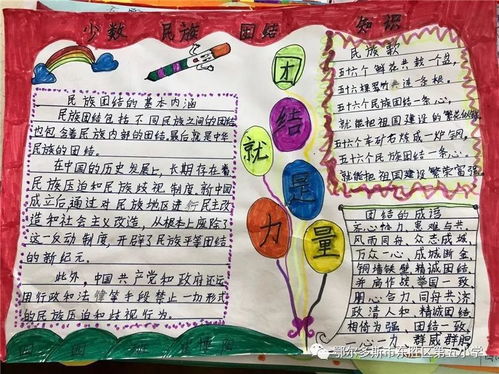 少数 民族 团结 知识
民族团结的基本内涵
民族团结包括不同民族之间的团结
也包含着民族内部的团结。最后就是中华
民族的团结。
在中国的历史发展上，长期存在着
民族压迫和民族歧视制度。新中国
成立后，通过对民族地区进行民主改
造和社会主义改造，从根本上废除了
这一反动制度，开辟了民族平等团结
的新纪元。
此外，中国共产党和政府还运
用行政和法律等手段禁止一切形式
的民族压迫和歧视行为。
团
结
就
是
力
量
民族歌
五十六个
五十六个民族团结一条心，
就能把祖国建设
五十六个民族团结一条心，
就能把祖国建设繁荣富强
团结的成语
齐心协力 患难与共
风雨同舟，众志成城，
万众一心，成城断金，
铜墙铁壁 精诚团结，
并肩作战 举国一致
用心合力，同舟共济
政清人和 精诚团结，
相依为强，团结一致，
心一力，群威群胆
鄂尔多斯市东胜区第五小学